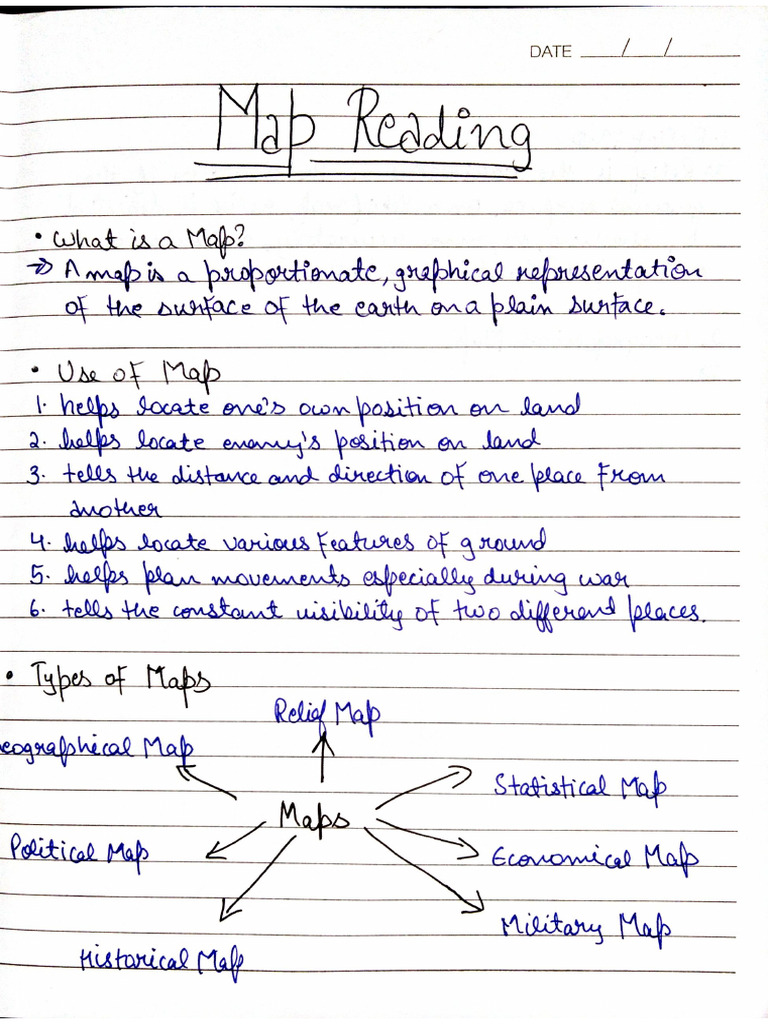 DATE / /
Map Reading
• What is a Map?
→ A map is a proportionate, graphical representation
of the surface of the earth on a plain surface.
• Use of Map
1. helps locate one's own position on land
2. helps locate enemy's position on land
3. tells the distance and direction of one place from
another
4. helps locate various features of ground
5. helps plan movements especially during war
6. tells the constant visibility of two different places.
• Types of Maps
Relief Map
eographical Map
Statistical Map
Maps
Political Map
Economical Map
Military Map
Historical Map